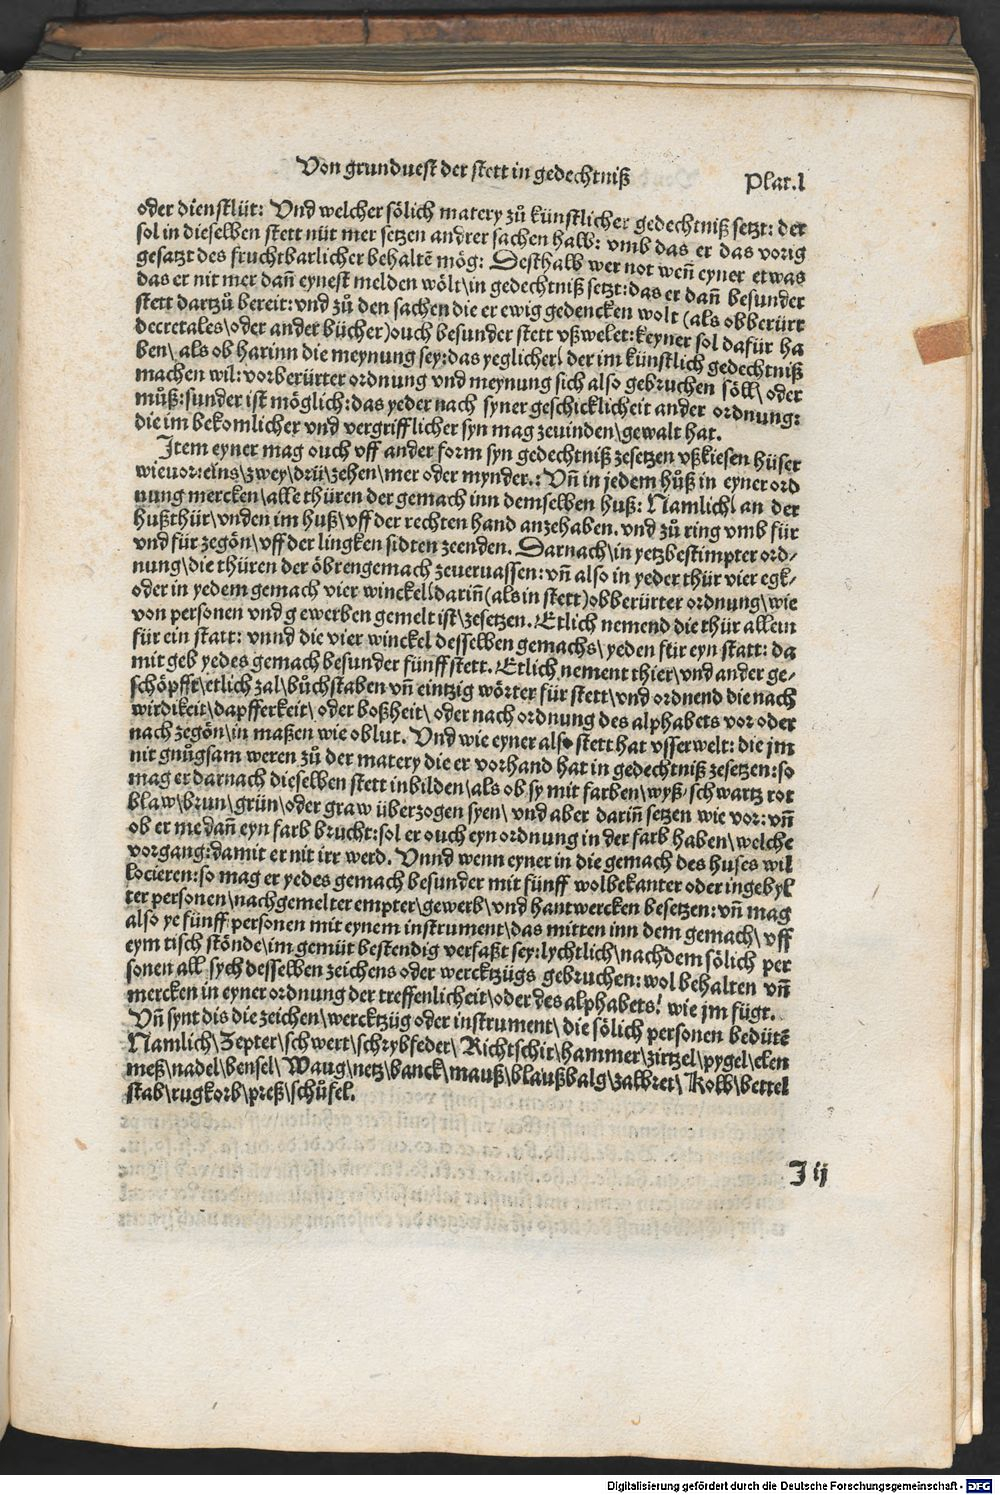 Von grunduest der stett in gedechtniß
Plat.l
oder dienstlüt: Vnd welcher sölich matery zů künstlicher gedechtniß setzt: der
sol in dieselben stett nüt mer setzen andrer sachen halb: vmb das er das vorig
gesatzt des fruchtbarlicher behaltē mög: Desthalb wer not weñ eyner etwas
das er nit mer dañ eynest melden wölt\in gedechtniß setzt: das er dañ besunder
stett dartzů bereit: vnd zů den sachen die er ewig gedencken wolt (als obberürt
decretales\oder ander bücher) ouch besunder stett vßwelet: keyner sol dafür ha
ben\ als ob harinn die meynung sey: das yeglicher\ der im künstlich gedechtniß
machen wil: vorberürter ordnung vnd meynung sich also gebruchen söll\ oder
můß: sunder ist möglich: das yeder nach syner geschicklicheit ander ordnung:
die im bekomlicher vnd vergrifflicher syn mag zeuinden\gewalt hat.
Item eyner mag ouch vff ander form syn gedechtniß zesetzen vßkiesen hüser
wieuor: eins\zwey\drü\zehen\mer oder mynder.: Vñ in jedem hůß in eyner ord
nung mercken\alle thüren der gemach inn demselben huß: Namlich\ an der
hußthür\vnden im huß\vff der rechten hand anzehaben. vnd zů ring vmb für
vnd für zegön\vff der lingken sidten zeenden. Darnach\in yetzbestimpter ord⸗
nung\die thüren der öbrengemach zeueruassen: vñ also in yeder thür vier egk⸗
oder in yedem gemach vier winckel\dariñ (als in stett) obberürter ordnung\wie
von personen vnd gewerben gemelt ist\zesetzen. Etlich nemend die thür allein
für ein statt: vnnd die vier winckel desselben gemachs\ yeden für eyn statt: da
mit geb yedes gemach besunder fünff stett. Etlich nement thier\vnd ander ge⸗
schöpfft\etlich zal\bůchstaben vñ eintzig wörter für stett\vnd ordnend die nach
wirdikeit\dapfferkeit\ oder boßheit\ oder nach ordnung des alphabets vor oder
nach zegön\in maßen wie oblut. Vnd wie eyner also stett hat vsserwelt: die jm
nit gnůgsam weren zů der matery die er vorhand hat in gedechtniß zesetzen: so
mag er darnach dieselben stett inbilden\als ob sy mit farben\wyß\schwartz rot
blaw\brun\grün\oder graw überzogen syen\ vnd aber dariñ setzen wie vor: vñ
ob er me dañ eyn farb brucht: sol er ouch eyn ordnung in der farb haben\welche
vorgang: damit er nit irr werd. Vnnd wenn eyner in die gemach des huses wil
locieren: so mag er yedes gemach besunder mit fünff wolbekanter oder ingebyl
ter personen\nachgemelter empter\gewerb\vnd hantwercken besetzen: vñ mag
also ye fünff personen mit eynem instrument\das mitten inn dem gemach\ vff
eym tisch stönde\im gemüt bestendig verfaßt sey: lychtlich\nachdem sölich per
sonen all sych desselben zeichens oder wercktzügs gebruchen: wol behalten vñ
mercken in eyner ordnung der treffenlicheit\oder des alphabets\ wie jm fügt.
Vñ synt dis die zeichen\wercktzüg oder instrument\ die sölich personen bedütē
Namlich\Zepter\schwert\schrybfeder\ Richtschit\hammer\zirtzel\pygel\elen
meß\nadel\bensel\ Waug\netz\banck\mauß\blaußbalg\zalbret\ Kolb\bettel
stab\rugkorb\preß\schüfel.
I ij
Digitalisierung gefördert durch die Deutsche Forschungsgemeinschaft - DFG